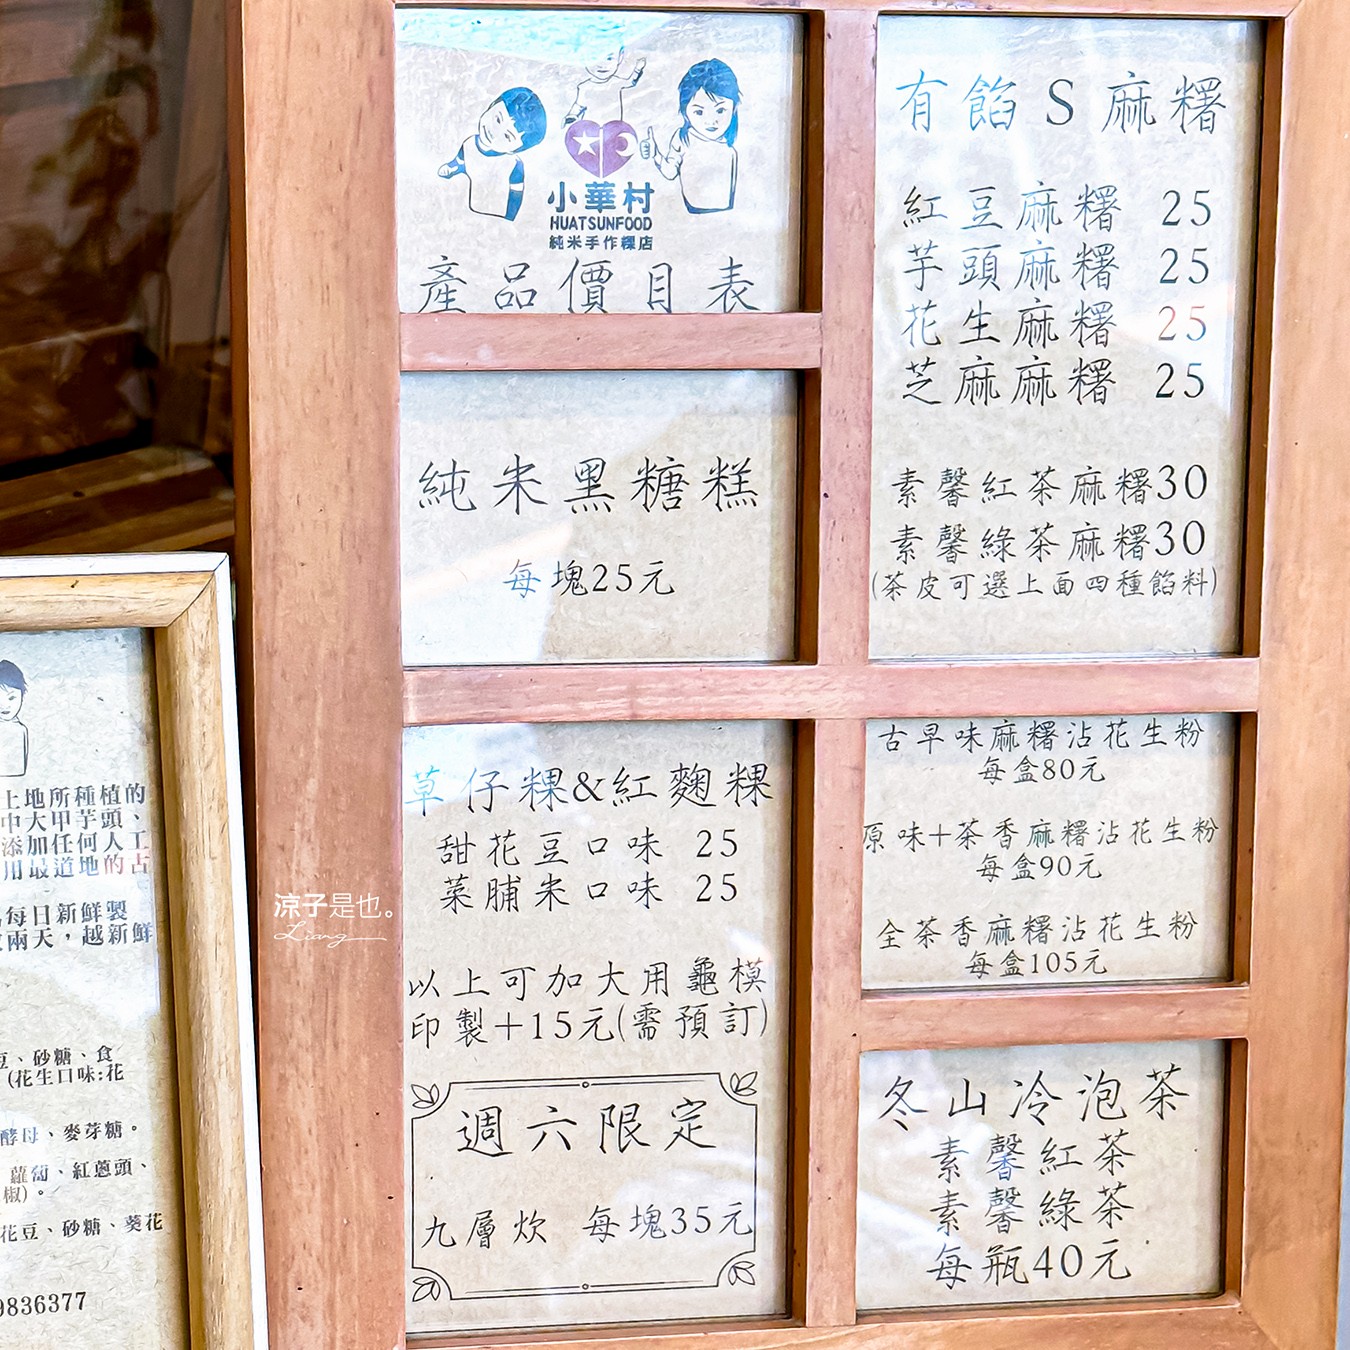 小華村
HUATSUNFOOD
純米手作粿店
產品價目表
純米黑糖糕
每塊25元
草仔粿&紅麴粿
甜花豆口味 25
菜脯米口味 25
以上可加大用龜模
印製+15元(需預訂)
週六限定
九層炊 每塊35元
有餡S麻糬
紅豆麻糬 25
芋頭麻糬 25
花生麻糬 25
芝麻麻糬 25
素馨紅茶麻糬30
素馨綠茶麻糬30
(茶皮可選上面四種餡料)
古早味麻糬沾花生粉
每盒80元
原味+茶香麻糬沾花生粉
每盒90元
全茶香麻糬沾花生粉
每盒105元
冬山冷泡茶
素馨紅茶
素馨綠茶
每瓶40元
上地所種植的
中大甲芋頭、
添加任何人工
用最道地的古
每日新鮮製
兩天，越新鮮
豆、砂糖、食
(花生口味:花
酵母、麥芽糖。
蘿蔔、紅蔥頭、
椒)。
花豆、砂糖、葵花
9836377
涼子是也。
Liang